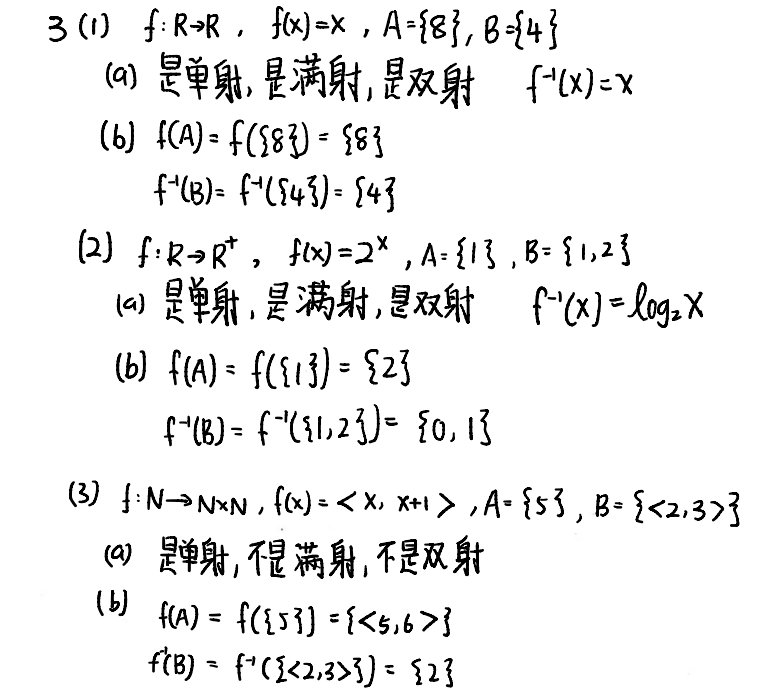 3 (1) f:R→R, f(x)=x, A={8}, B={4}
(a) 是单射,是满射,是双射 f⁻¹(x)=x
(b) f(A)=f({8})={8}
f⁻¹(B)=f⁻¹({4})={4}
(2) f:R→R⁺, f(x)=2ˣ, A={1}, B={1,2}
(a) 是单射,是满射,是双射 f⁻¹(x)=log₂x
(b) f(A)=f({1})={2}
f⁻¹(B)=f⁻¹({1,2})={0,1}
(3) f:N→N×N, f(x)=<x, x+1>, A={5}, B={<2,3>}
(a) 是单射,不是满射,不是双射
(b) f(A)=f({5})={<5,6>}
f⁻¹(B)=f⁻¹({<2,3>})={2}